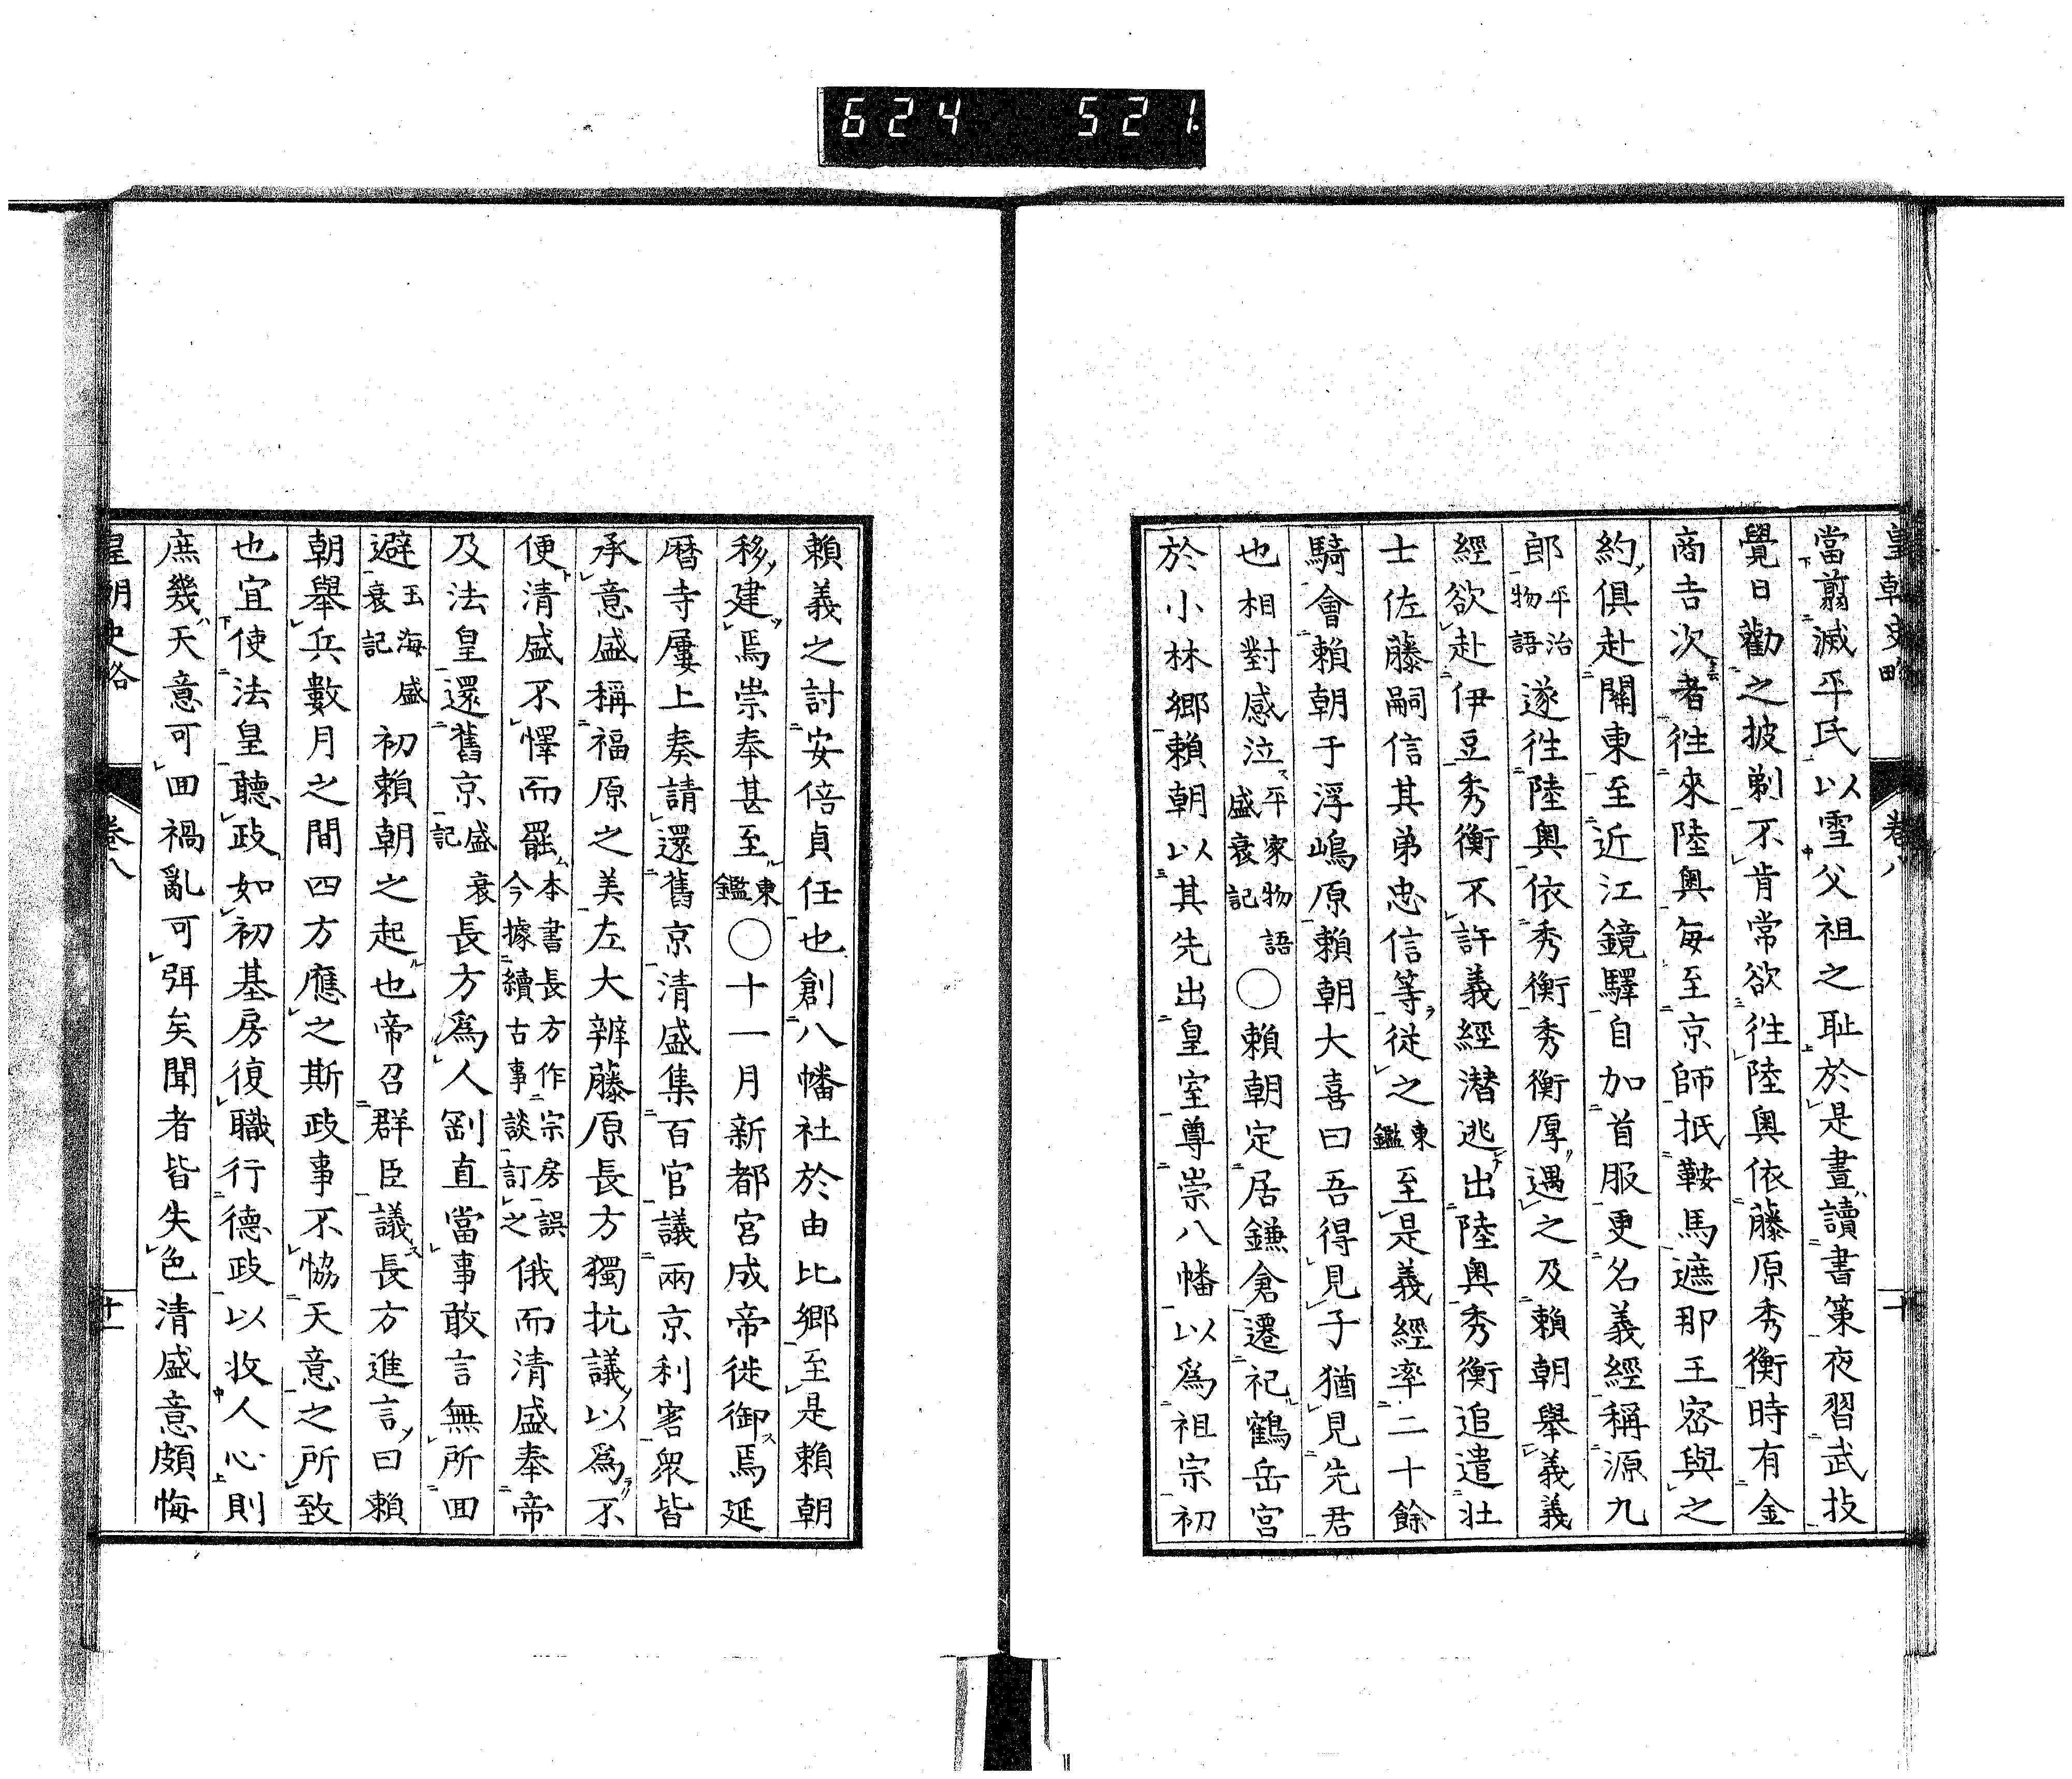 624 521
皇朝史略 卷八 十
當翦滅平氏以雪父祖之恥於是晝讀書策夜習武技
覺日勸之披剃不肯常欲往陸奧依藤原秀衡時有金
商吉次者往來陸奧每至京師抵鞍馬遮那王密與之
約俱赴關東至近江鏡驛自加首服更名義經稱源九
郎平治物語遂往陸奧依秀衡秀衡厚遇之及賴朝舉義義
經欲赴伊豆秀衡不許義經潛逃出陸奧秀衡追遣壯
士佐藤嗣信其弟忠信等從之東鑑至是義經率二十餘
騎會賴朝于浮嶋原賴朝大喜曰吾得見子猶見先君
也相對感泣平家物語盛衰記○賴朝定居鎌倉遷祀鶴岳宮
於小林鄉賴朝以其先出皇室尊崇八幡以爲祖宗初
賴義之討安倍貞任也創八幡社於由比鄉至是賴朝
移建焉崇奉甚至東鑑○十一月新都宮成帝徙御焉延
曆寺屢上奏請還舊京清盛集百官議兩京利害衆皆
承意盛稱福原之美左大辨藤原長方獨抗議以爲不
便清盛不懌而罷本書長方作宗房誤今據續古事談訂之俄而清盛奉帝
及法皇還舊京盛衰記長方爲人剛直當事敢言無所回
避玉海盛衰記初賴朝之起也帝召群臣議長方進言曰賴
朝舉兵數月之間四方應之斯政事不協天意之所致
也宜使法皇聽政如初基房復職行德政以收人心則
庶幾天意可回禍亂可弭矣聞者皆失色清盛意頗悔
皇朝史略 卷八 十一